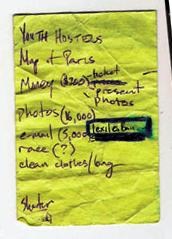 Youth Hostels
Map of Paris
Money ($200) ticket
present
photos
photos (16,000)
email (5,000)
race (?)
clean clothes/bag